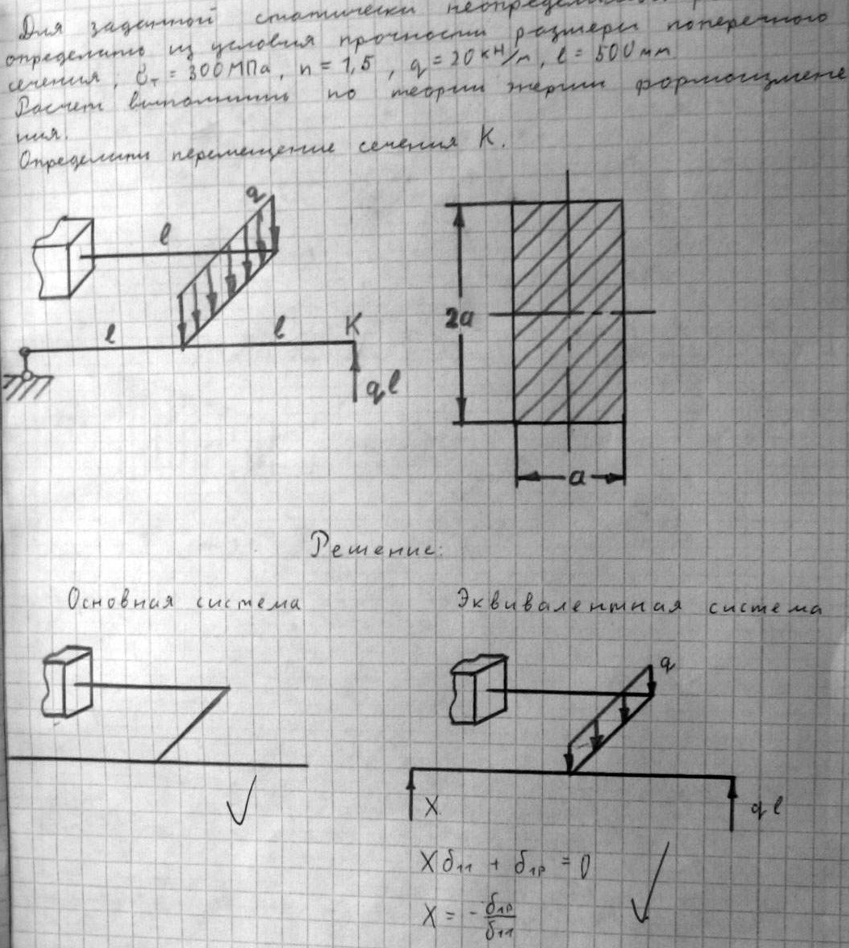 Для заданной статически
определить из условия прочности размеры поперечного
сечения, σт = 300 МПа, n = 1,5, q = 20 кН/м, l = 500 мм
Расчет выполнить по теории энергии формоизмене
ния.
Определить перемещение сечения K.
q
l
l
l
K
ql
2a
a
Решение:
Основная система
Эквивалентная система
q
X
ql
Xδ11 + δ1p = 0
X = - δ1p/δ11